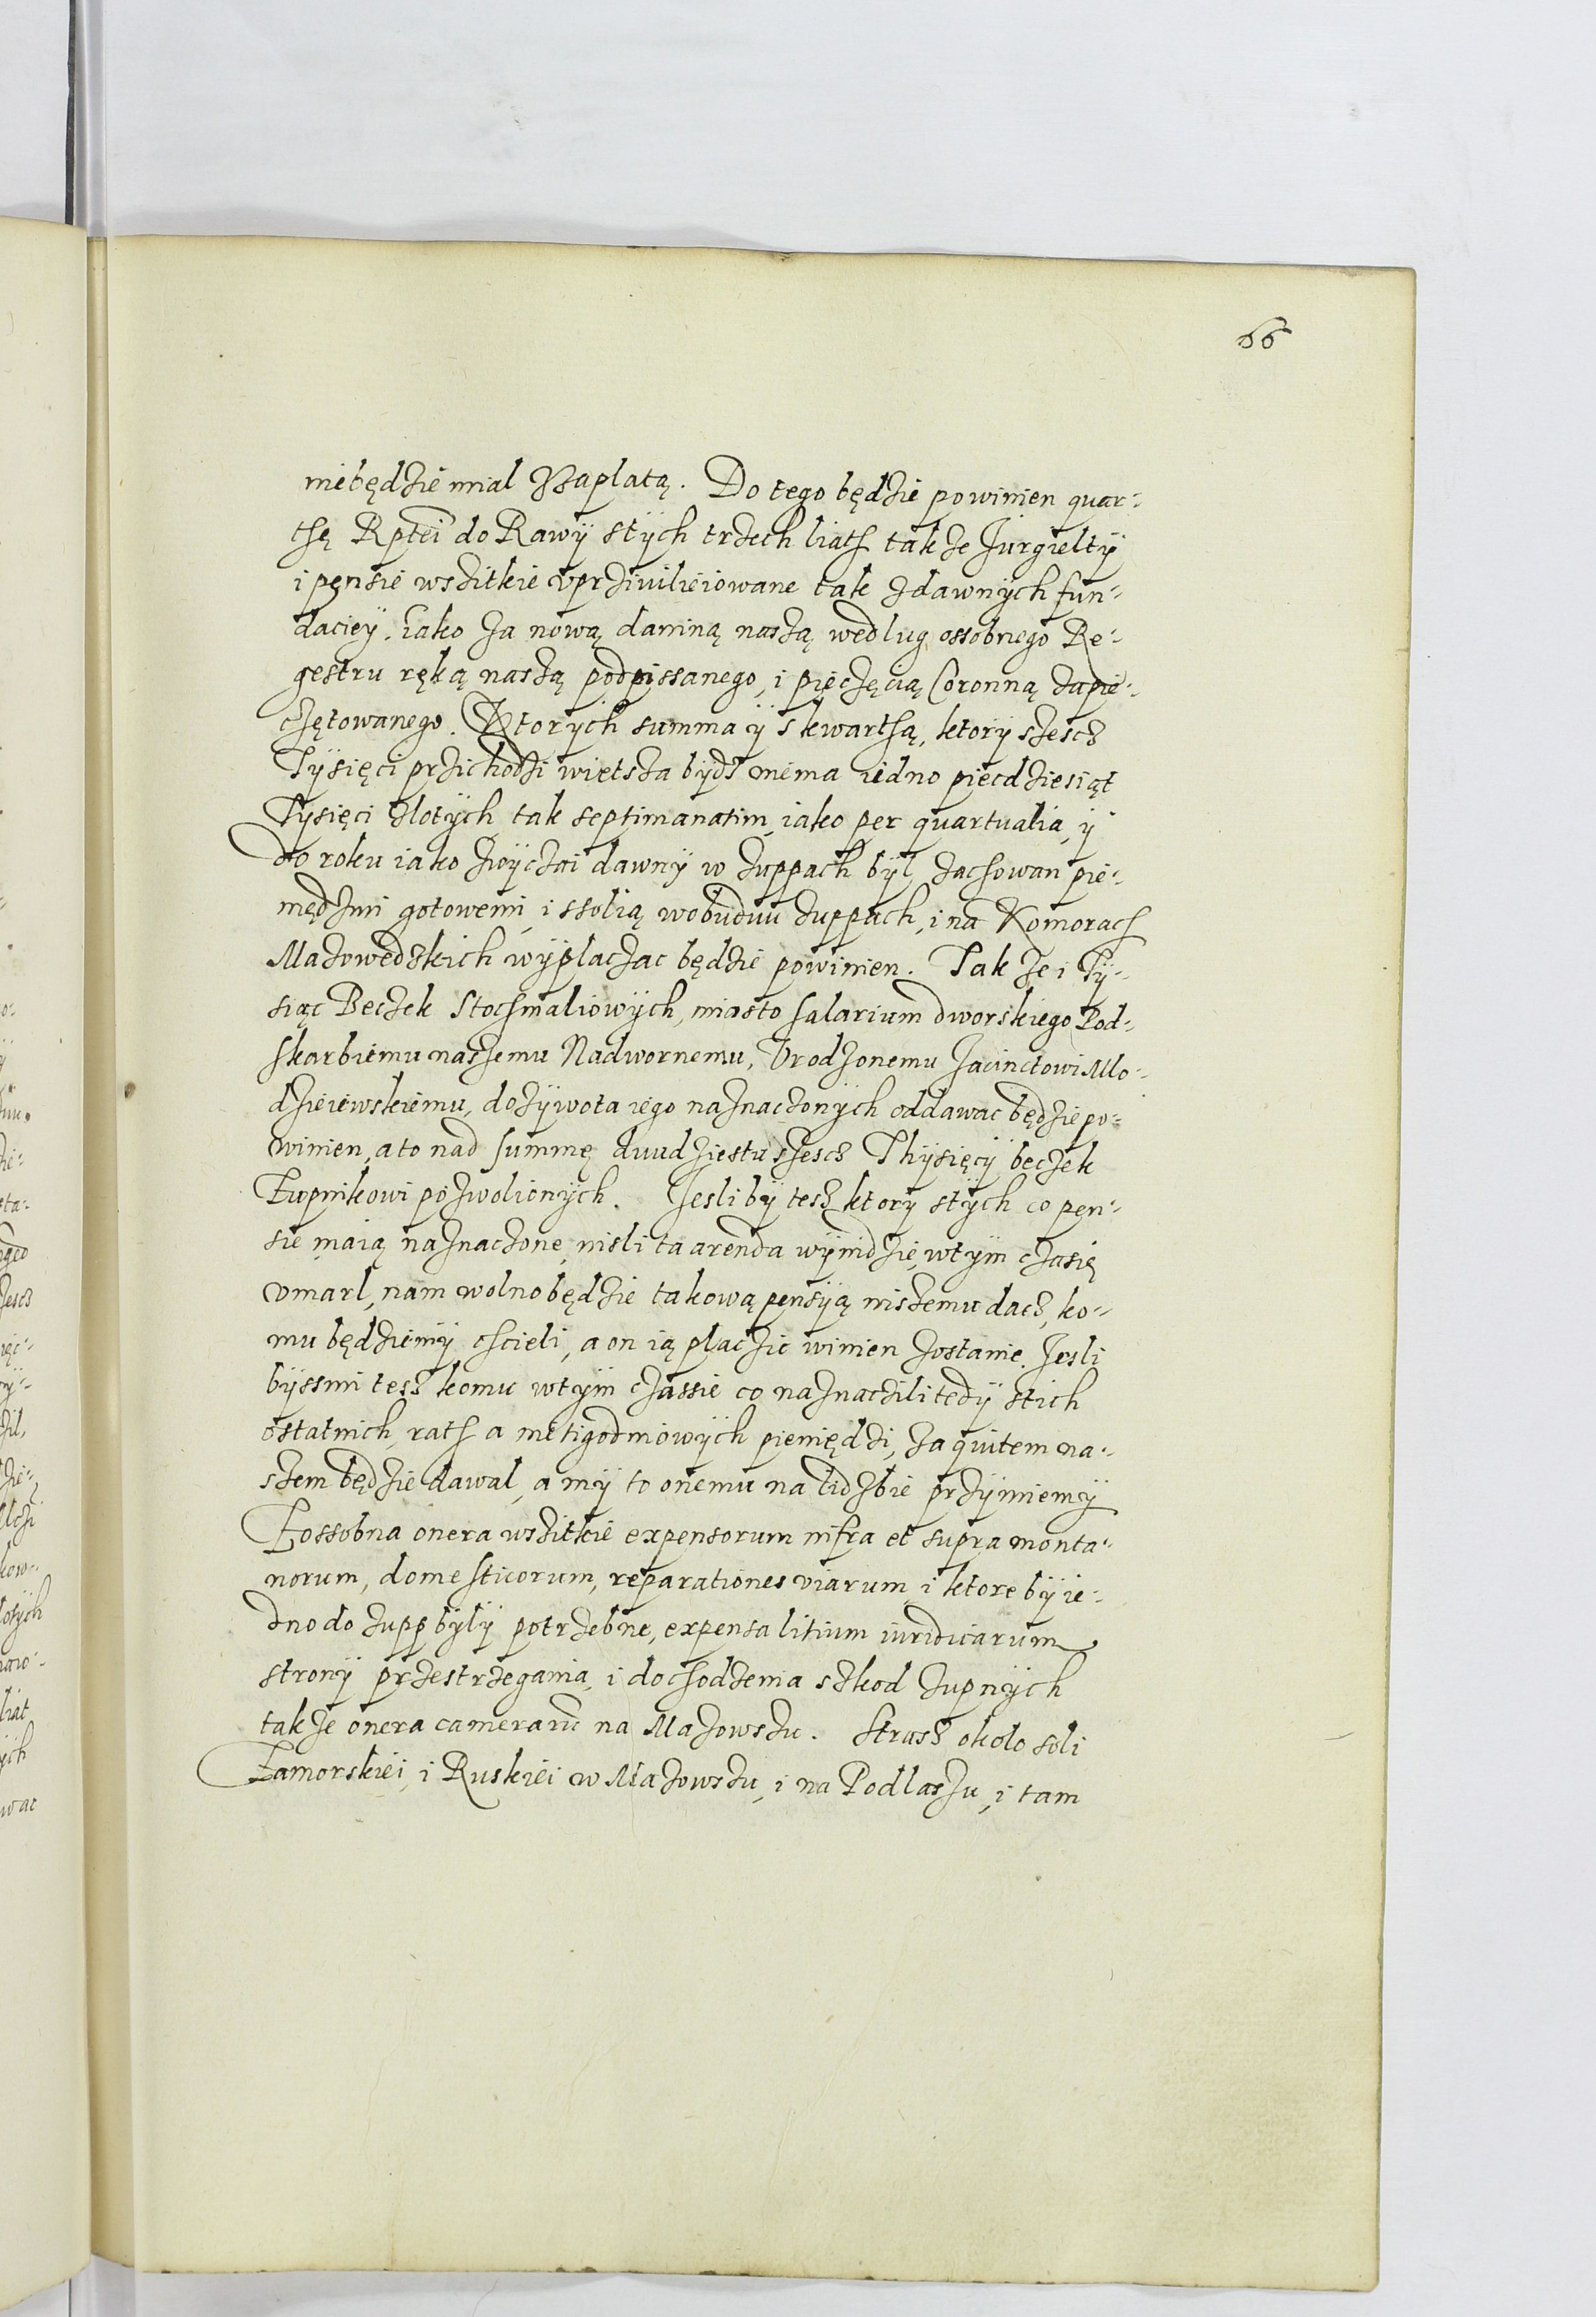 66
niebędzie mial Zzaplatą. Do tego będzie powinien quar-
thę Rptei do Rawÿ stÿch trzech liath takze Jurgieltÿ
i pensie wszitkie vprziuilieiowane tak zdawnÿch fun-
daciey, iako za nową daniną naszą według ossobnego Re-
gestru ręką naszą podpissanego, i pięczęcią Coronną zapie-
czętowanego. Ktorÿch summa ÿ s kwarthą, ktorÿ szescz
Tÿsięci przichodzi wietsza bÿdz niema iedno piecdziesiąt
Tÿsięci zlotÿch tak septimanatim, iako per quartualia, ÿ
do roku iako zwÿczai dawnÿ w zuppach bÿl zachowan pie-
niędzmi gotowemi, i ssolią wobudwu zuppach, i na Komorach
Mazowedzkich wÿplaczac będzie powinien. Takze i Tÿ-
siąc Beczek Stochmaliowÿch, miasto salarium dworskiego Pod-
skarbiemu naszemu Nadwornemu, Vrodzonemu Jacinctowi Mlo-
dzieiewskiemu, dozÿwota iego naznaczonÿch oddawac będzie po-
winien, a to nad summę dwudziestu szescz Thÿsięcÿ beczek
Zupnikowi pozwolionÿch. Jesli bÿ tesz ktorÿ stÿch co pen-
sie maią naznaczone, nisli ta arenda wÿnidzie, wtÿm czasię
vmarl, nam wolno będzie takową pensÿą niszemu dacz, ko-
mu będziemÿ chcieli, a on ią placzic winien zostanie. Jesli
bÿssmi tesz komu wtÿm czassie co naznaczili tedÿ stich
ostatnich, rath a nietigodniowÿch pieniędzi, za quitem na-
szem będzie dawal, a mÿ to onemu na lidzbie przÿmiemÿ
Zossobna onera wszitkie expensorum infra et supra monta-
norum, domesticorum, reparationes viarum, i ktore bÿ ie-
dno do zupp bÿlÿ potrzebne, expensa litium iuridicarum
stronÿ przestrzegania, i dochodzenia szkod zupnÿch
takze onera cameraru na Mazowszu. Strasz okolo soli
Zamorskiei, i Ruskiei w Mazowszu, i na Podlaszu, i tam